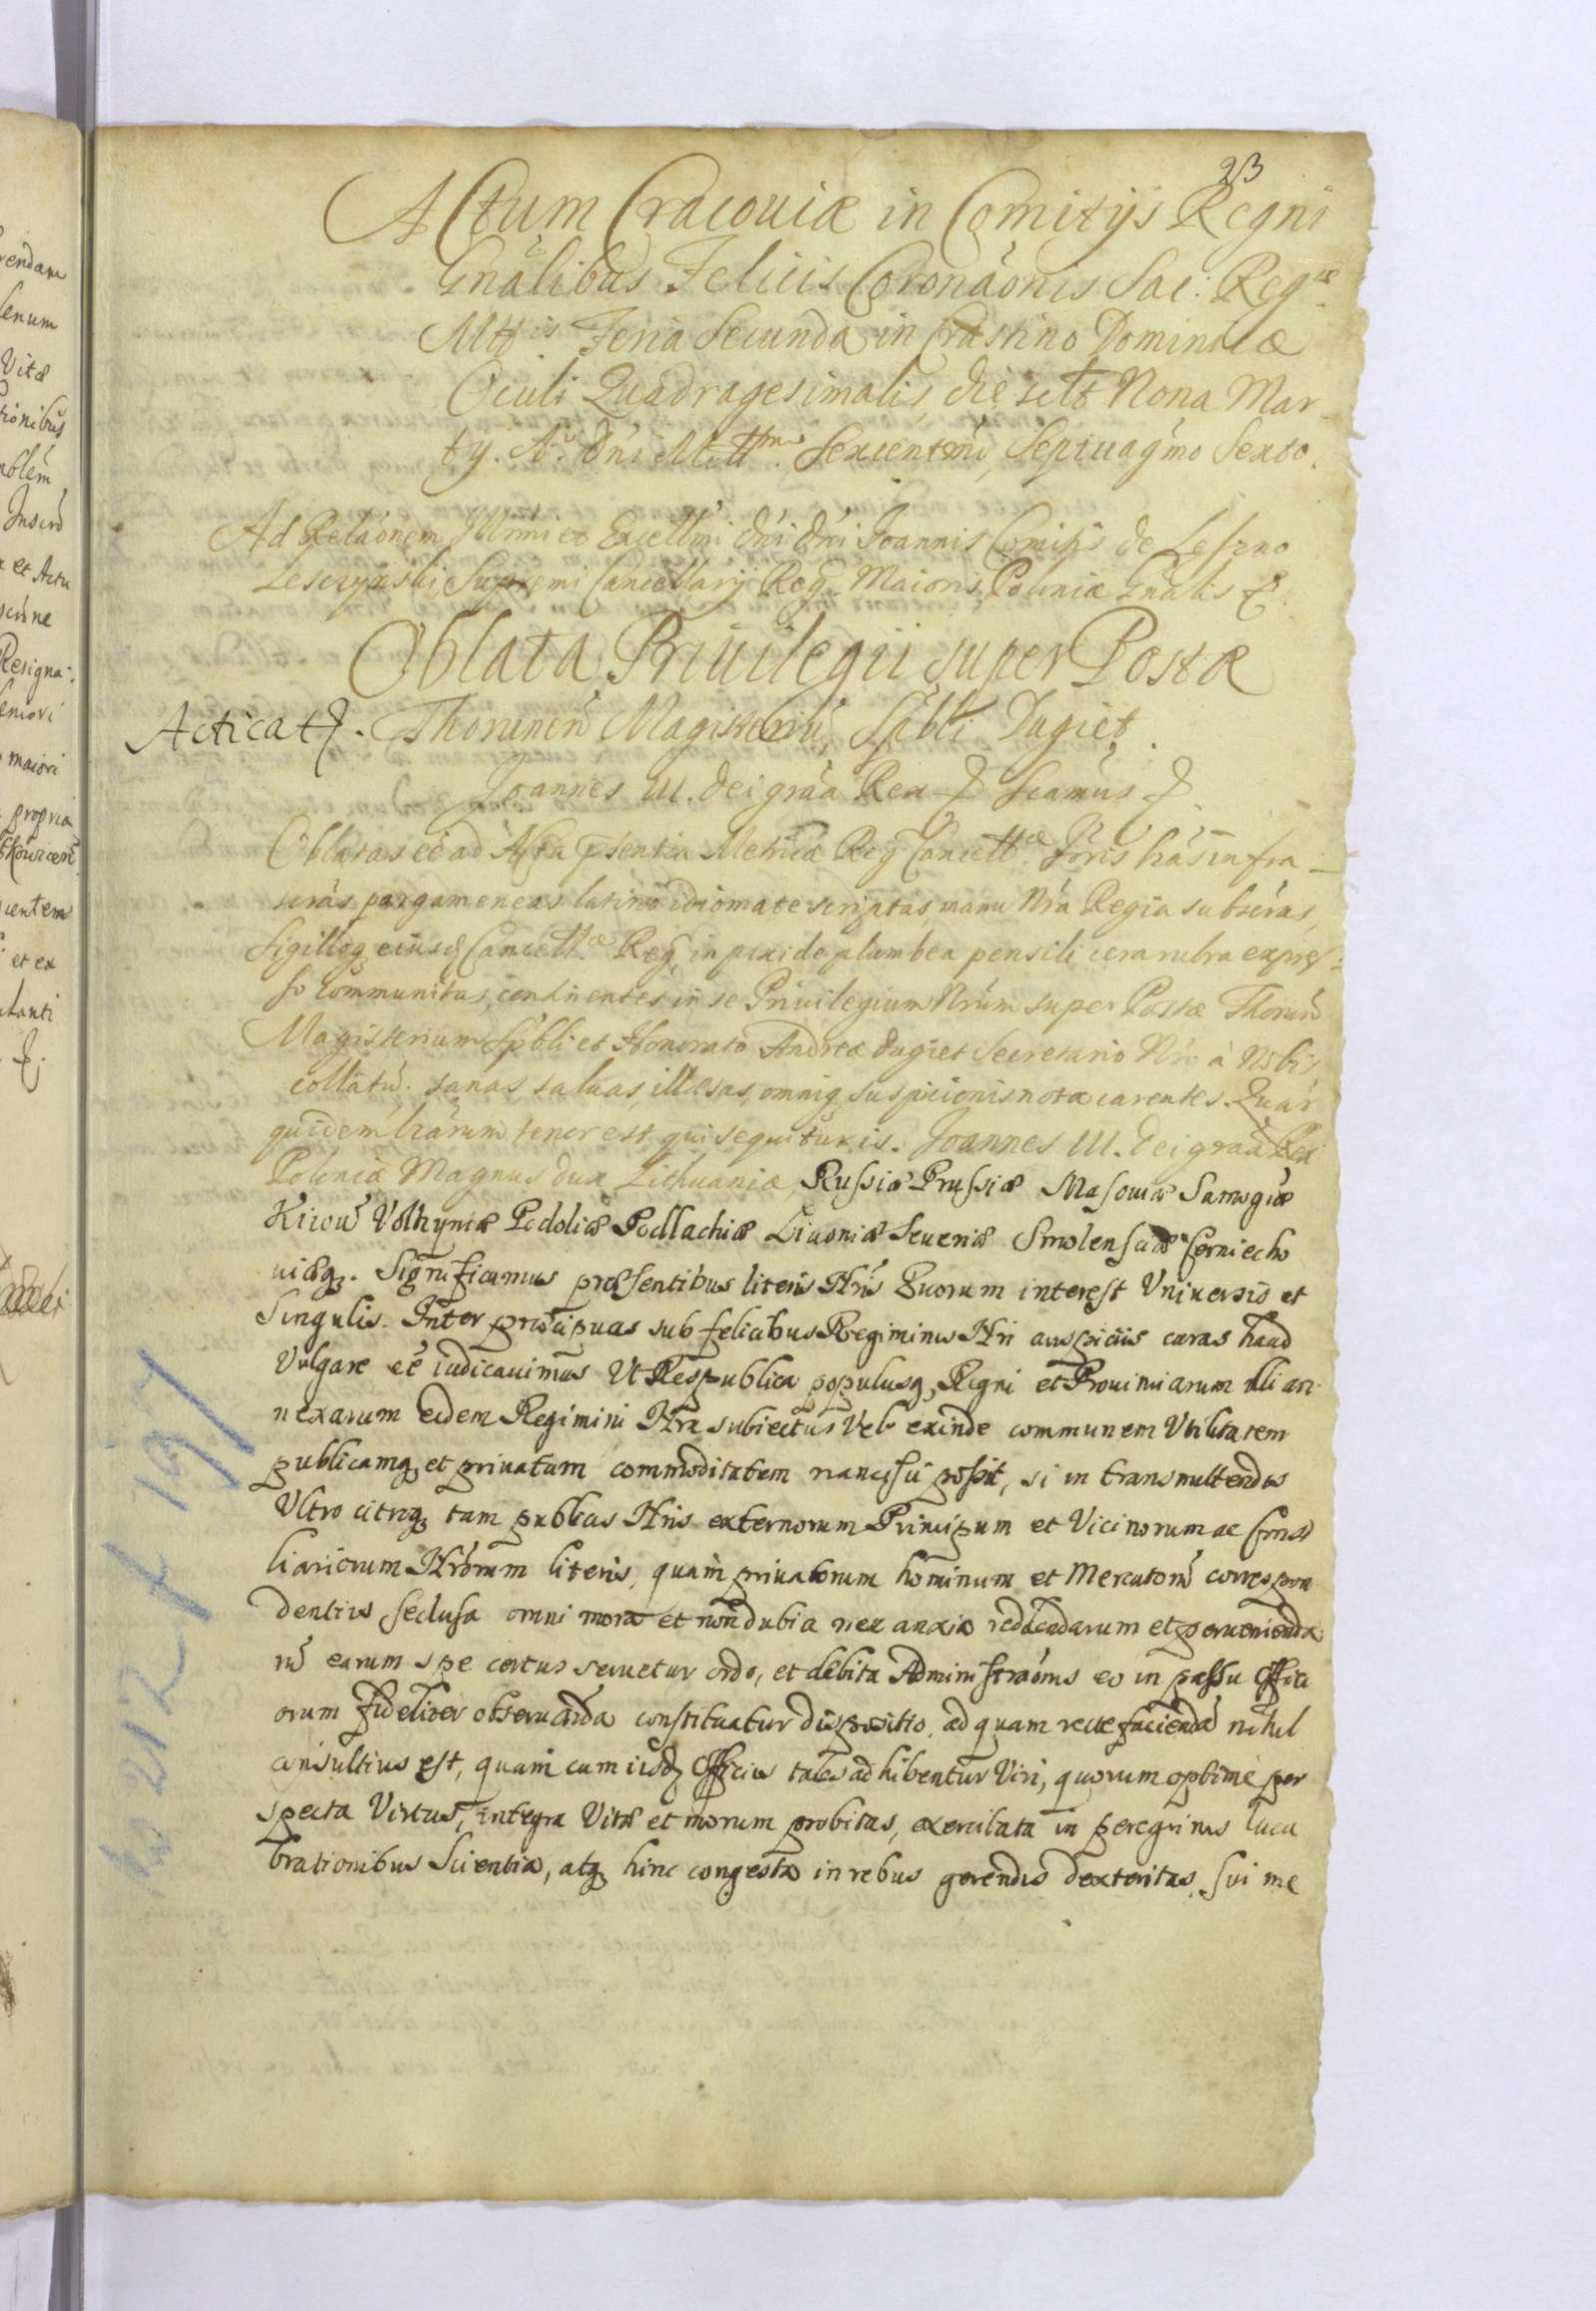 23
Actum Cracoviæ in Comitijs Regni
Gnãlibus Felicis Coronãonis Sac: Regiæ
Mttis Feria Secunda in Crastino Dominicæ
Oculi Quadragesimalis, die sclt Nona Mar
tij. Aº. Dni Mill͞mo. Sexcentmõ, Septuagmo Sexto.
Ad Relãonem Illrmi et Excellmi dni dni Joannis Comitis de Leszno
Lesczynski Supremi Cancellarij Reg. Maioris Poloniæ Gnãlis
Oblata Privilegii super Postæ
Acticat. Thorunen Magisteriũ, Spbli Dugiet.
Joannes III. Dei grãa Rex Scamus
Oblatas eẽ ad Acta p̃sentia Metricæ Reg Cancellæ Nõris lrãs infra
scrãs pargameneas latino idiomate scriptas, manu Nrã Regia subscrãs,
Sigilloq eiusd Cancellæ Reg, in pixide plumbea pensili cera rubra expres-
so communitas, continentes in se Privilegium Nrum super Postæ Thorun
Magisterium Spbli et Honorato Andreæ Dugiet Secretario Nro à Nobis
collatũ. sanas, salvas, illæsas, omniq suspicionis nota carentes. Quar
quidem lrãrum tenor est qui sequitur is. Joannes III. Dei grãa Rex
Poloniæ Magnus Dux Lithuaniæ, Russiæ Prussiæ Masoviæ Samogitiæ
Kiiov Volhyniæ Podoliæ Podlachiæ Livoniæ Severiæ Smolensciæ Cerniecho
viæq. Significamus præsentibus literis Nris Quorum interest Universis et
Singulis. Inter præcipuas sub felicibus Regiminis Nri auspiciis curas haud
Vulgare eẽ iudicavimus Ut Respublica populusq, Regni et Provinciarum illi an
nexarum eidem Regimini Nro subiectus Vel exinde communem Utilitatem
publicamq, et privatam commoditatem nancisci possit, si in transmittendis
Ultro citroq, tam publicis Nris externorum Principum et Vicinorum ac Consi
liariorum Nrorum literis, quam privatorum hominum et Mercatorũ correspon
dentiis seclusa omni mora et non dubia nec anxia reddendarum et perveniendà
rũ earum spe certus servetur ordo, et debita Administrãonis eo in passu Offici
orum fideliter observanda constituatur dispositio, ad quam recte faciendã nihil
consultius est, quam cum iisd Officiis tales adhibentur Viri, quorum optime per
specta Virtus, integra Vitæ et morum probitas, exercitata in peregrinis lucu
brationibus Scientia, atq hinc congesta in rebus gerendis dexteritas, sui me